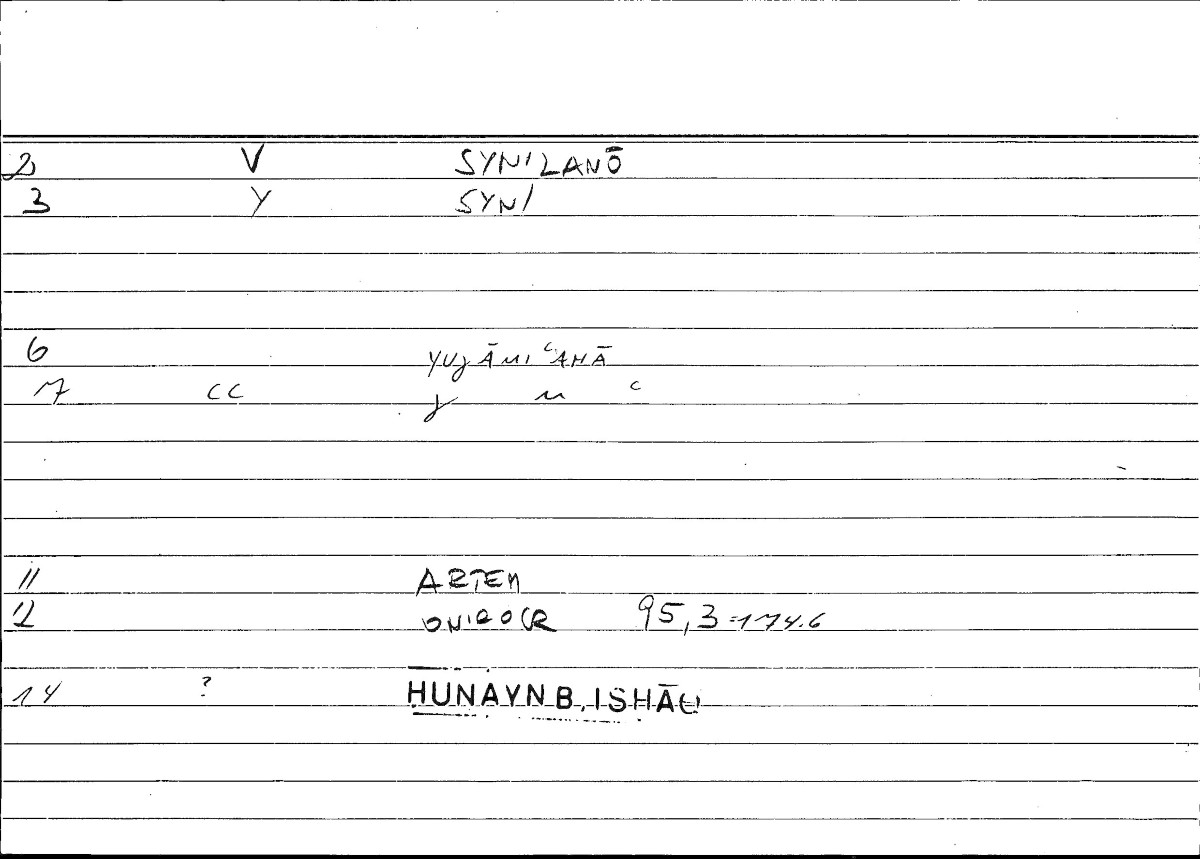 2 V SYNILANŌ
3 Y SYNI
6 YUJĀMIʿAHĀ
7 CC J M ʿ
11 ARTEM
12 ONIROCR 95,3 = 174.6
14 ? ḤUNAYN B. ISḤĀQ